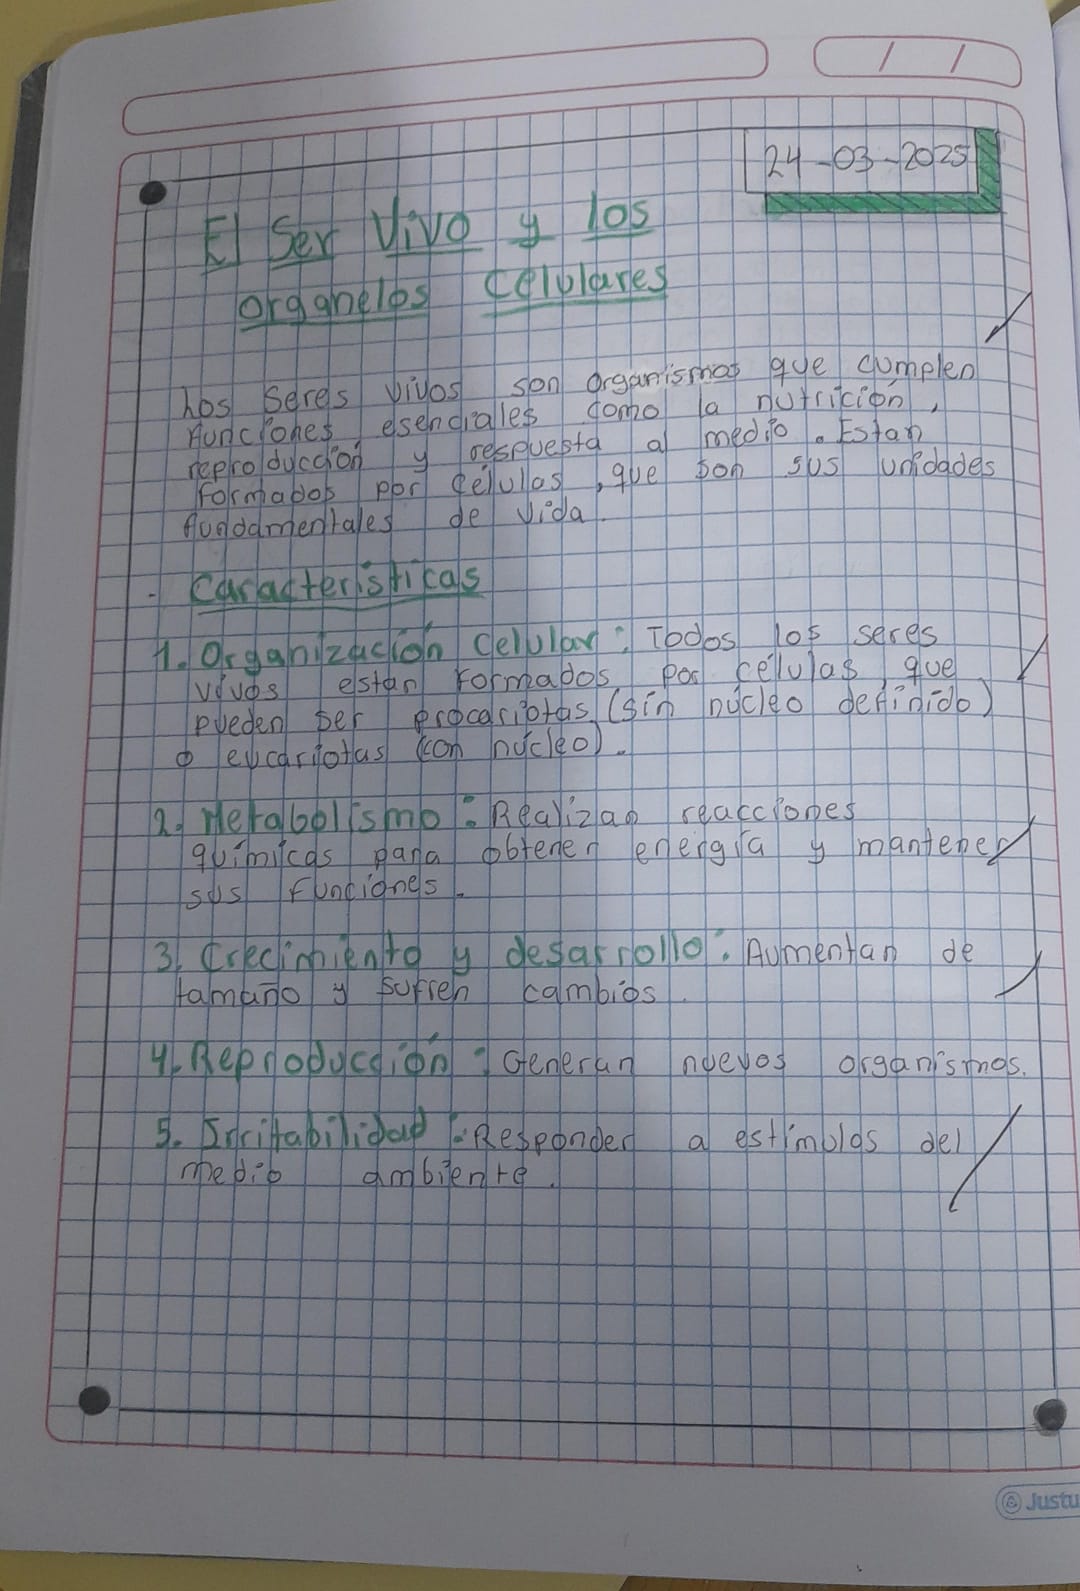 24-03-2025
El Ser Vivo y los
organelos celulares
Los seres vivos son organismos que cumplen
funciones esenciales como la nutrición,
reproducción y respuesta al medio. Estan
formados por células, que son sus unidades
fundamentales de vida.
- Caracteristicas
1. Organización Celular: Todos los seres
vivos estan formados por células, que
pueden ser procariotas (sin núcleo definido)
o eucariotas (con núcleo).
2. Metabolismo: Realizan reacciones
químicas para obtener energía y mantener
sus funciones.
3. Crecimiento y desarrollo: Aumentan de
tamaño y sufren cambios.
4. Reproducción: Generan nuevos organismos.
5. Irritabilidad: Responder a estímulos del
medio ambiente.
Justu